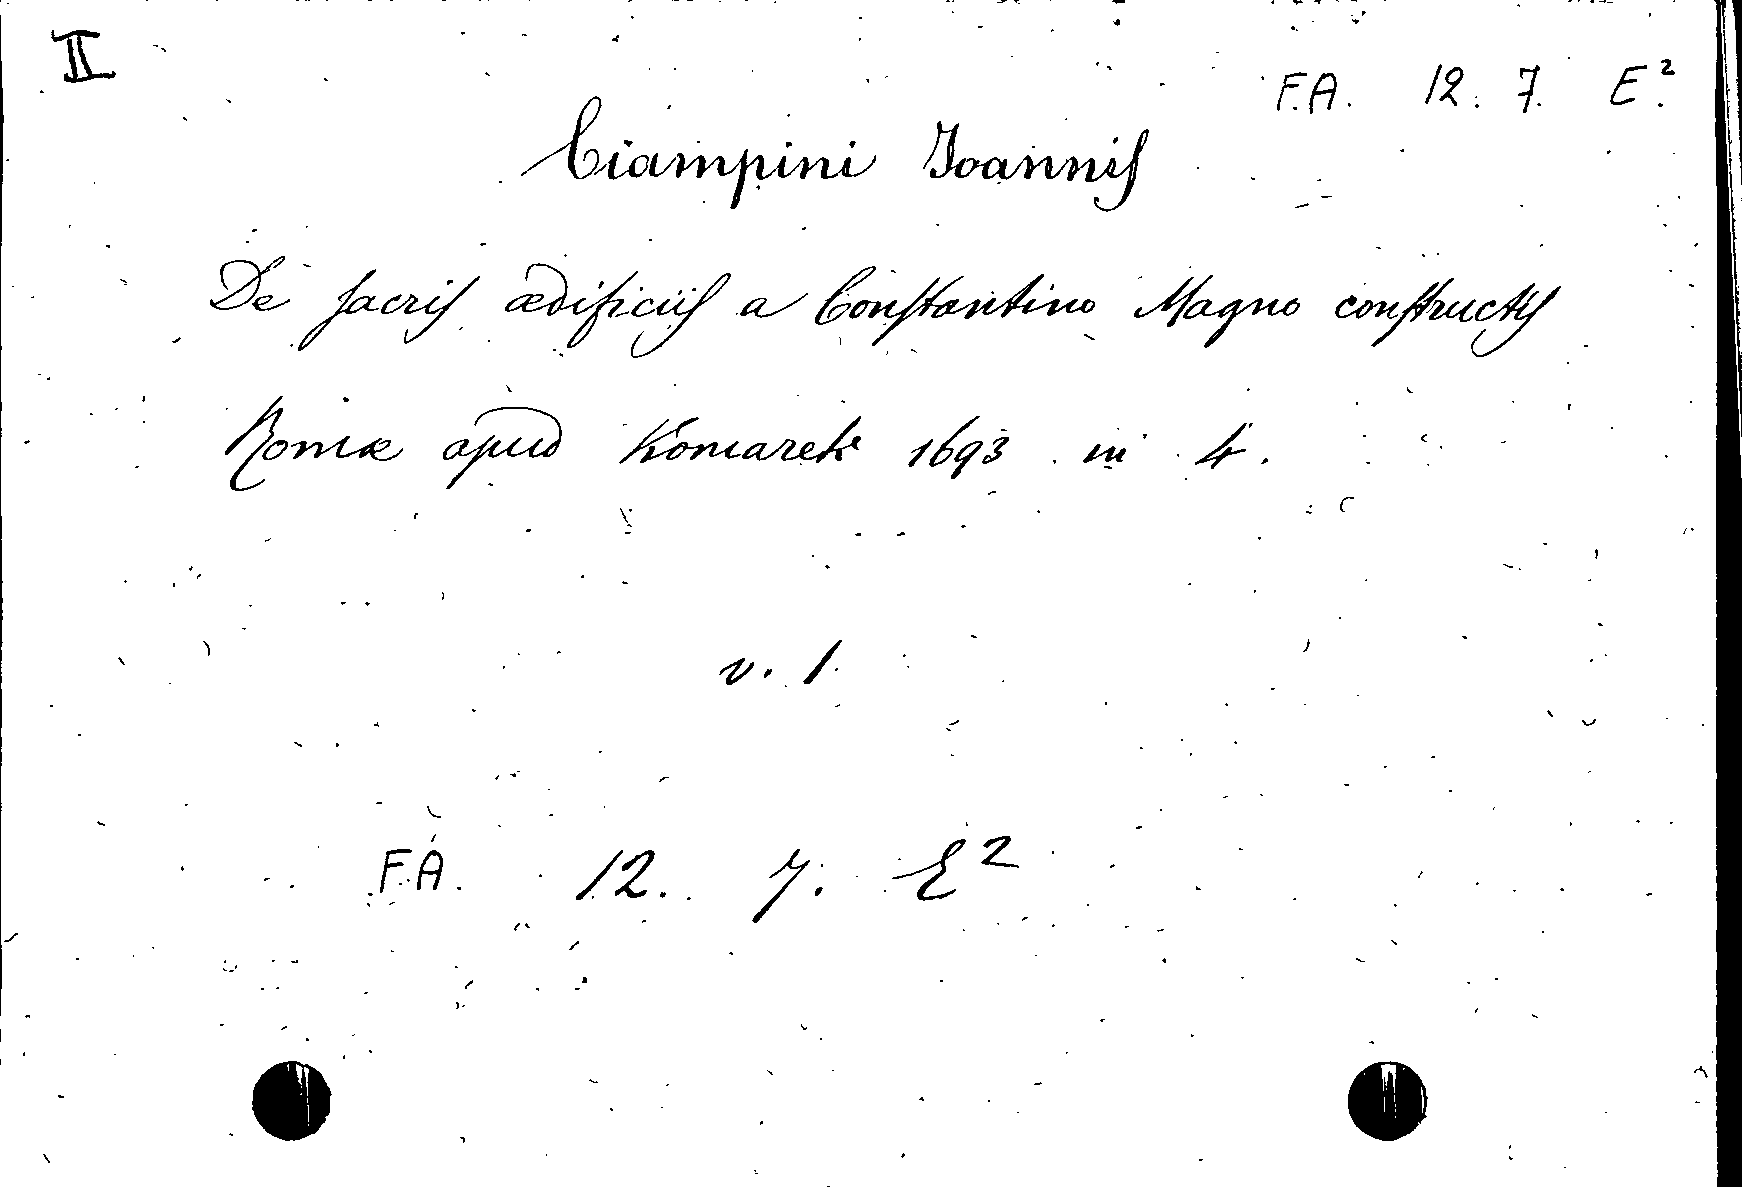 II
F.A. 12. 7. E.²
Ciampini Joannis
De sacris ædificiis a Constantino Magno constructis
Romæ apud Komarek 1693 in 4.
v. 1.
F.A. 12. 7. E²